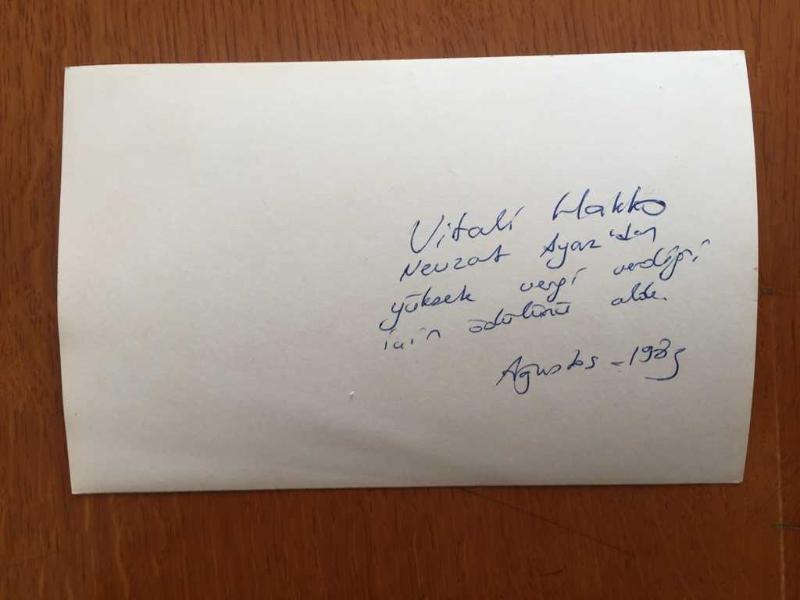 Vitali Hakko
Nevzat Ayaz'dan
yüksek vergi verdiği
için ödülünü aldı.
Ağustos - 1985